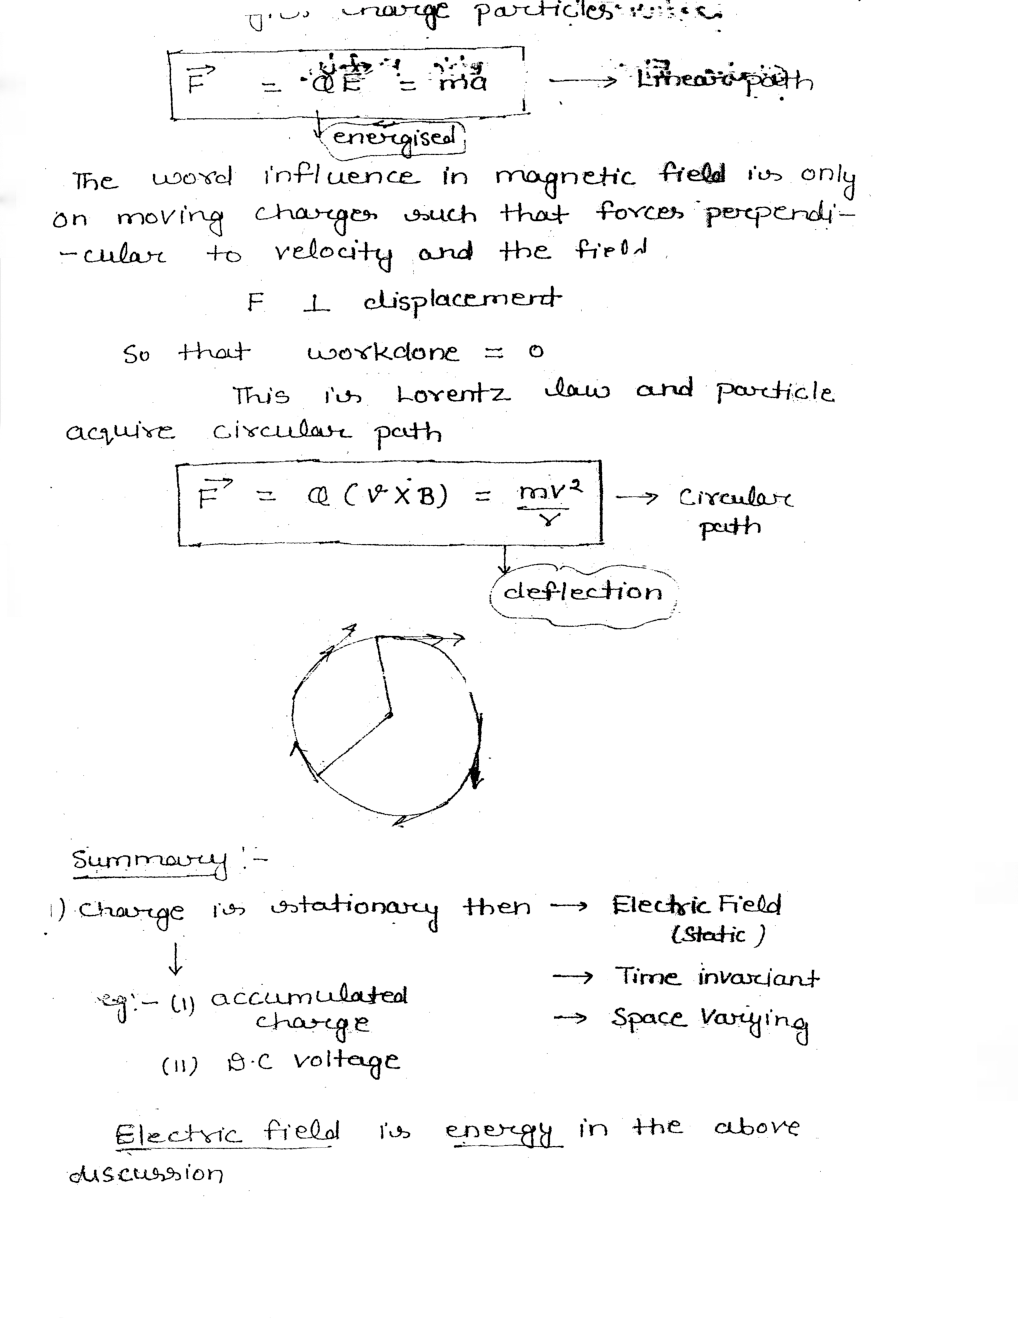 charge particles
F⃗ = QE = ma → Linear path
energised
The word influence in magnetic field is only
on moving charges such that forces perpendi-
-cular to velocity and the field.
F ⊥ displacement
So that workdone = 0
This is Lorentz law and particle
acquire circular path
F⃗ = Q (V X B) = mv²/r → Circular
path
deflection
Summary :-
1) Charge is stationary then → Electric Field
(Static)
↓ → Time invariant
eg:- (i) accumulated
charge → Space Varying
(ii) D.C voltage
Electric field is energy in the above
discussion